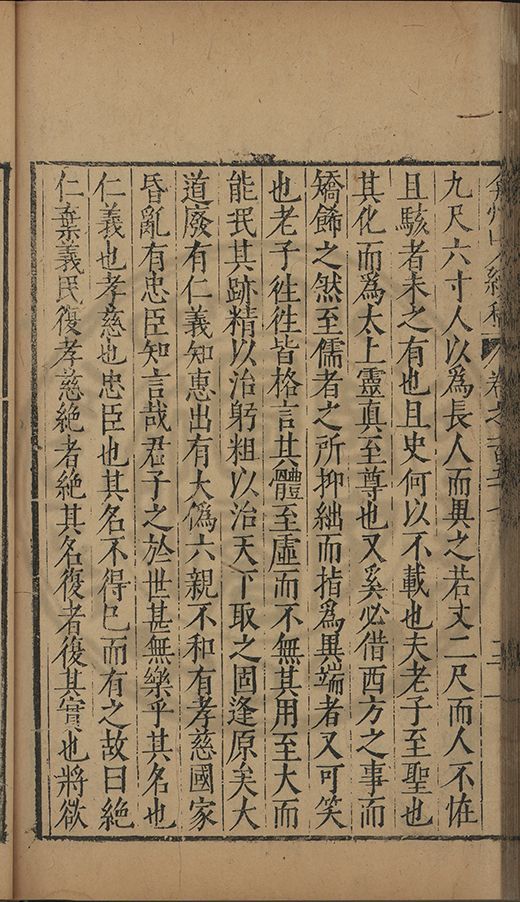 弇州山人續稿 卷之
九尺六寸人以爲長人而異之若丈二尺而人不恠
且駭者未之有也且史何以不載也夫老子至聖也
其化而爲太上靈真至尊也又奚必借西方之事而
矯飾之然至儒者之所抑絀而指爲異端者又可笑
也老子徃徃皆格言其體至虛而不無其用至大而
能泯其跡精以治躬粗以治天下取之固逢原矣大
道廢有仁義知惠出有大僞六親不和有孝慈國家
昏亂有忠臣知言哉君子之於世甚無樂乎其名也
仁義也孝慈也忠臣也其名不得已而有之故曰絶
仁棄義民復孝慈絶者絶其名復者復其實也將欲